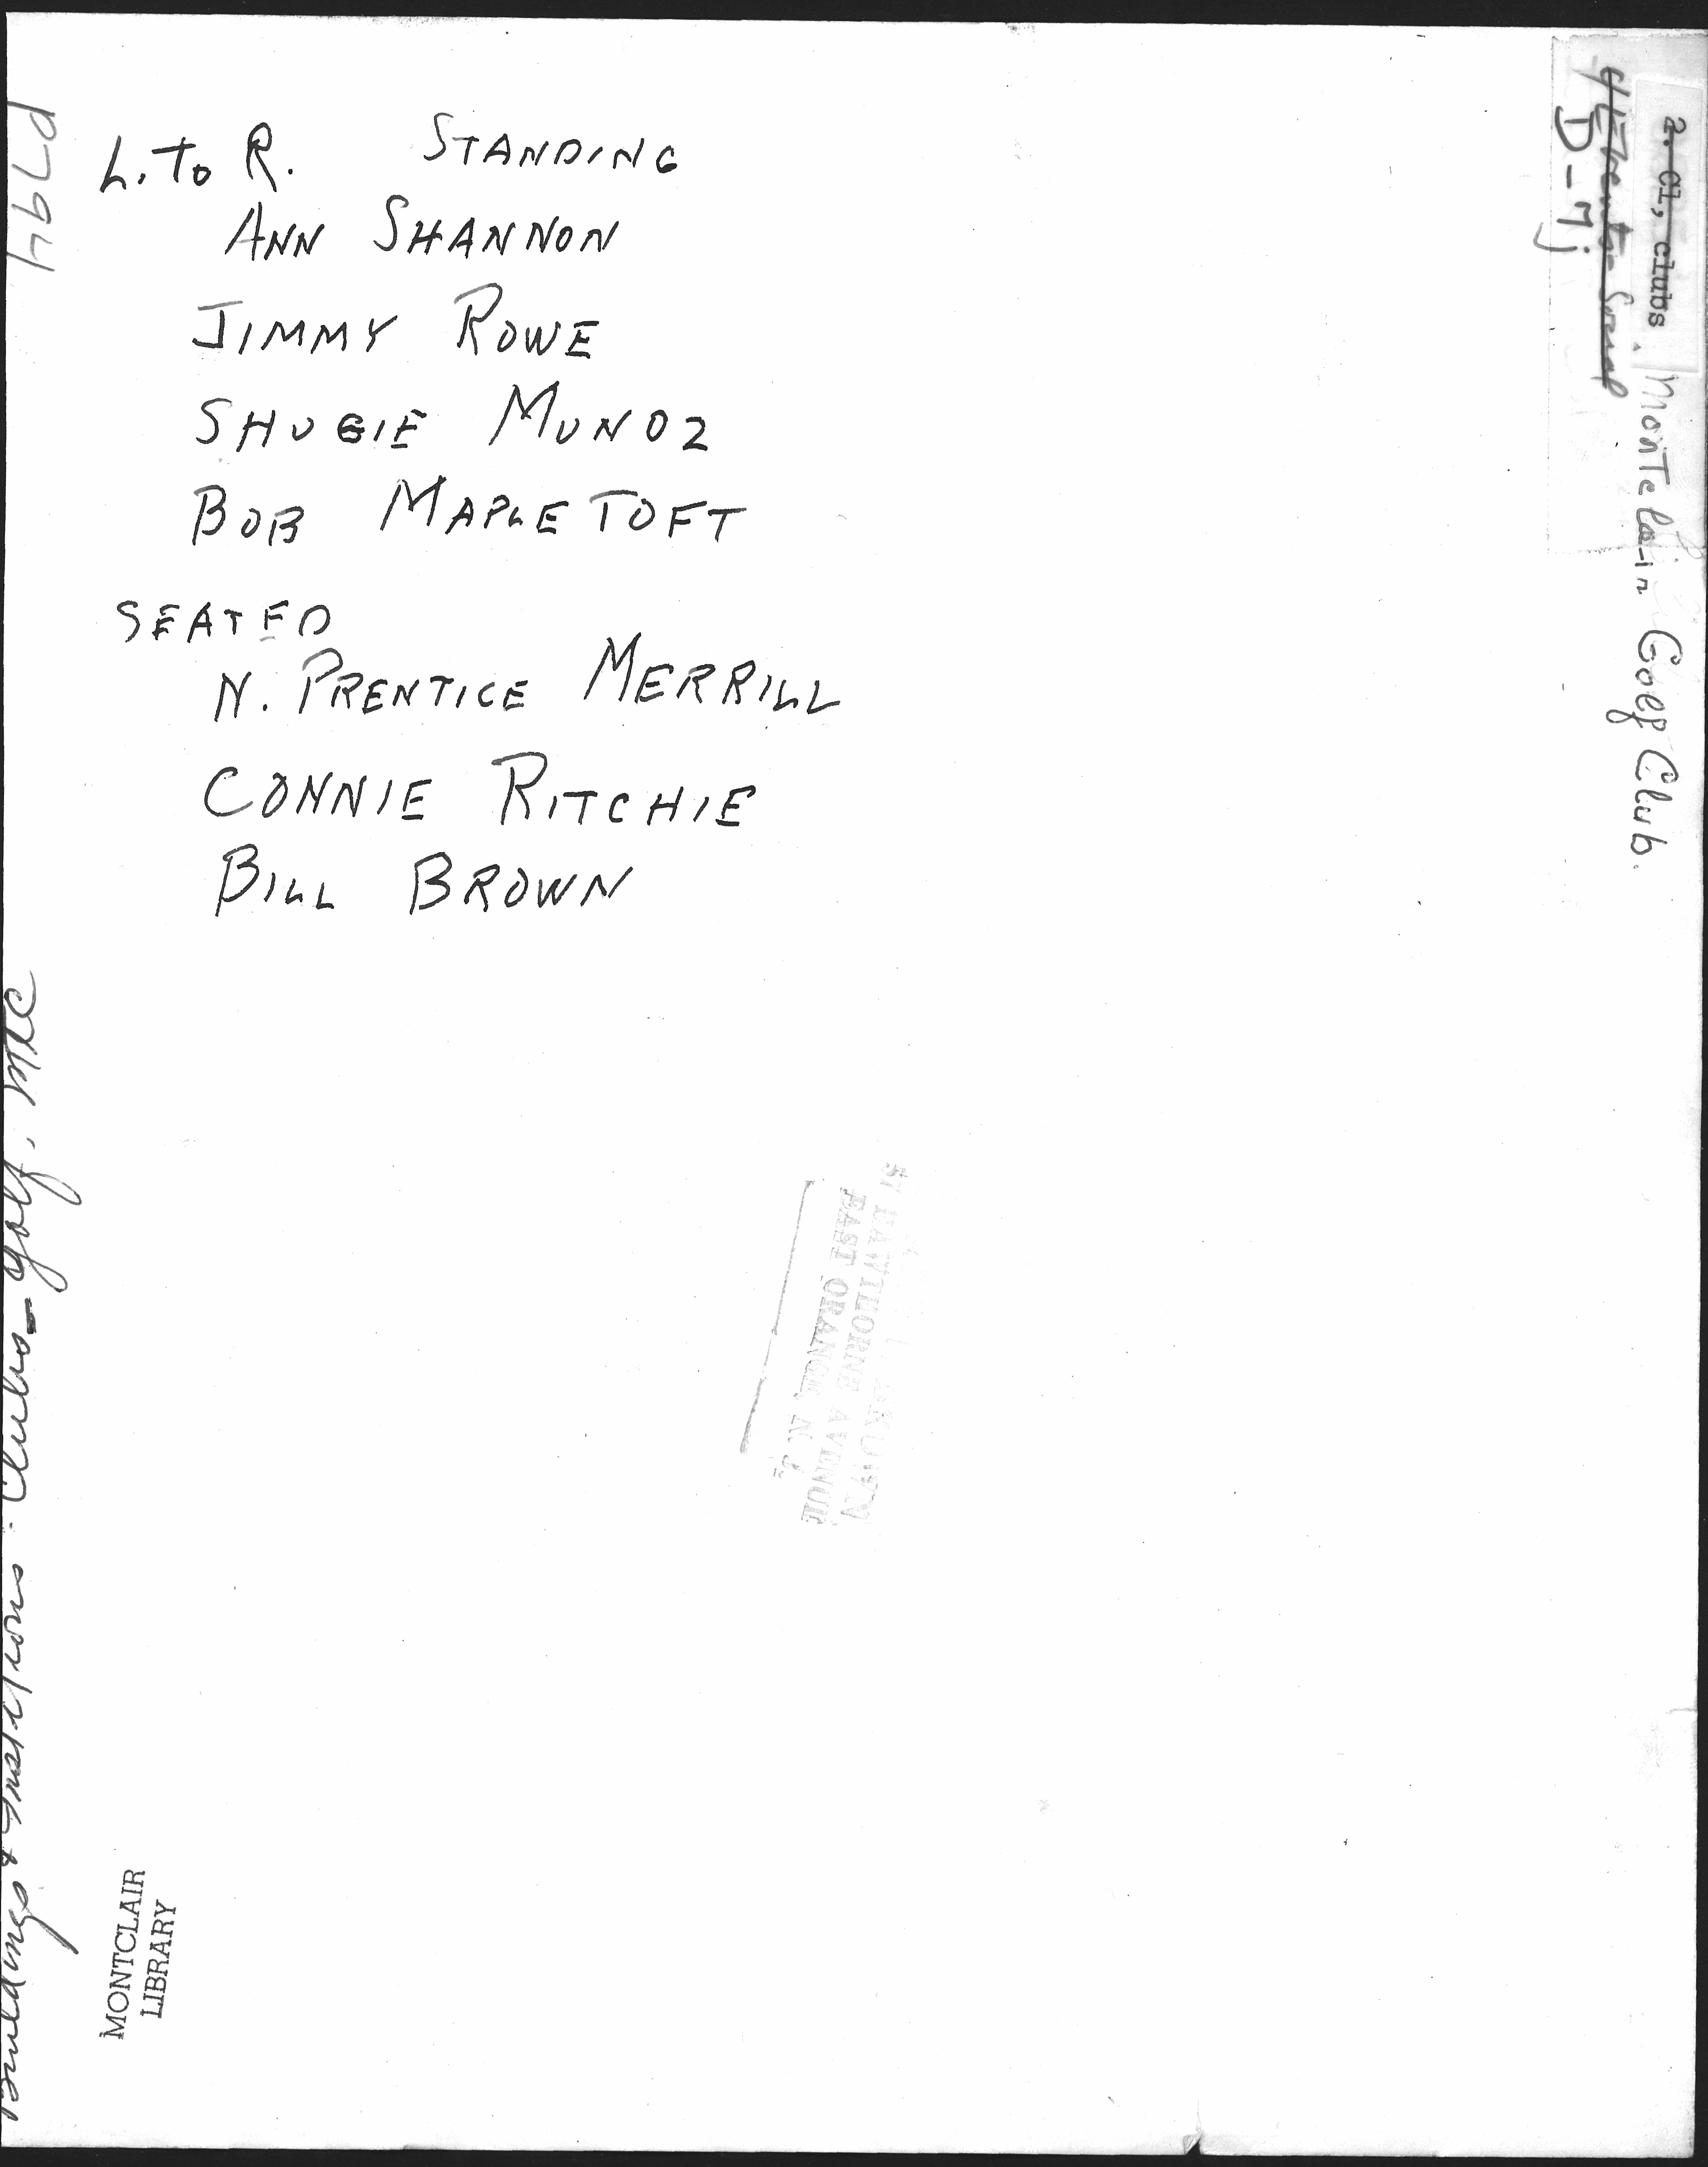 L. To R. STANDING
ANN SHANNON
JIMMY ROWE
SHUGIE MUNOZ
BOB MAPLETOFT
SEATED
N. PRENTICE MERRILL
CONNIE RITCHIE
BILL BROWN
P794
Buildings & Institutions. Clubs - Golf. MRC
MONTCLAIR
LIBRARY
2. Cl, clubs. Montclair Golf Club.
D-7j
HAWTHORNE AVENUE
EAST ORANGE, N. J.